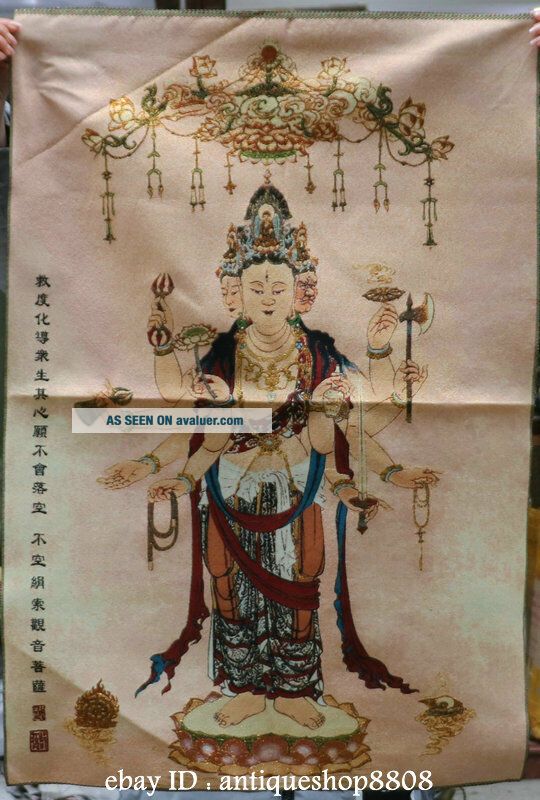 救度化導衆生其心願不會落空 不空絹索觀音菩薩
AS SEEN ON avaluer.com
ebay ID : antiqueshop8808